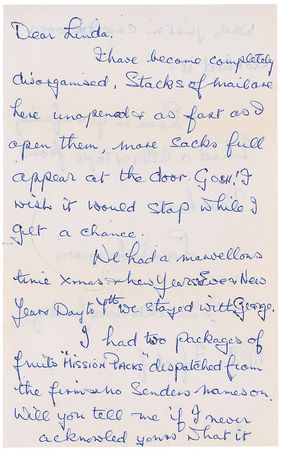 Dear Linda.
I have become completely
disorganised. Stacks of mail are
here unopened & as fast as I
open them, more sacks full
appear at the door. Gosh! I
wish it would stop while I
get a chance.
We had a marvellous
time xmas & New Years Eve & New
Years Day to we stayed with George.
I had two packages of
fruits "MISSION PACKS" dispatched from
the firms no Senders names on.
Will you tell me if I never
acknowled yours what it